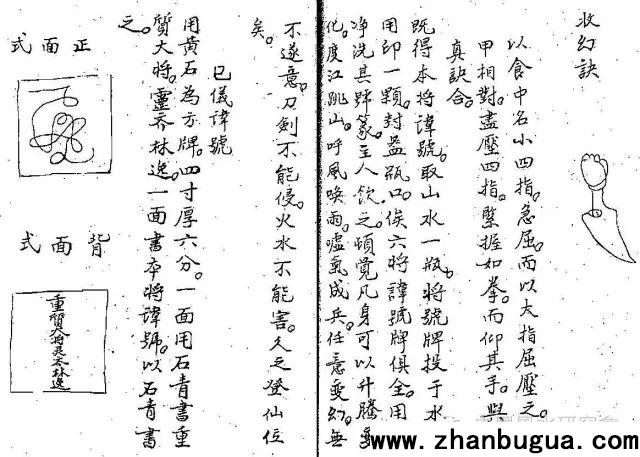 收幻訣
以食中名小四指。急屈。而以大指屈壓之。
甲相對。盡壓四指。緊握如拳。而仰其手。與
真訣合。
既得本將諱號。取山水一瓶。將號牌投于水
用印一顆。封盖瓶口。俟六將諱號牌俱全。用
净洗其號篆。主人飲之。頓覺凡身可以升騰變
化。度江跳山。呼風喚雨。噓氣成兵。任意變幻。無
不遂意。刀劍不能侵。火水不能害。久之登仙位
矣。
已儀諱號
用黄石為方牌。四寸厚六分。一面用石青書重
質大將。靈喬林逸。一面書本將諱號。以石青書
之。
正面式
背面式
重質大將灵喬林逸
www.zhanbugua.com